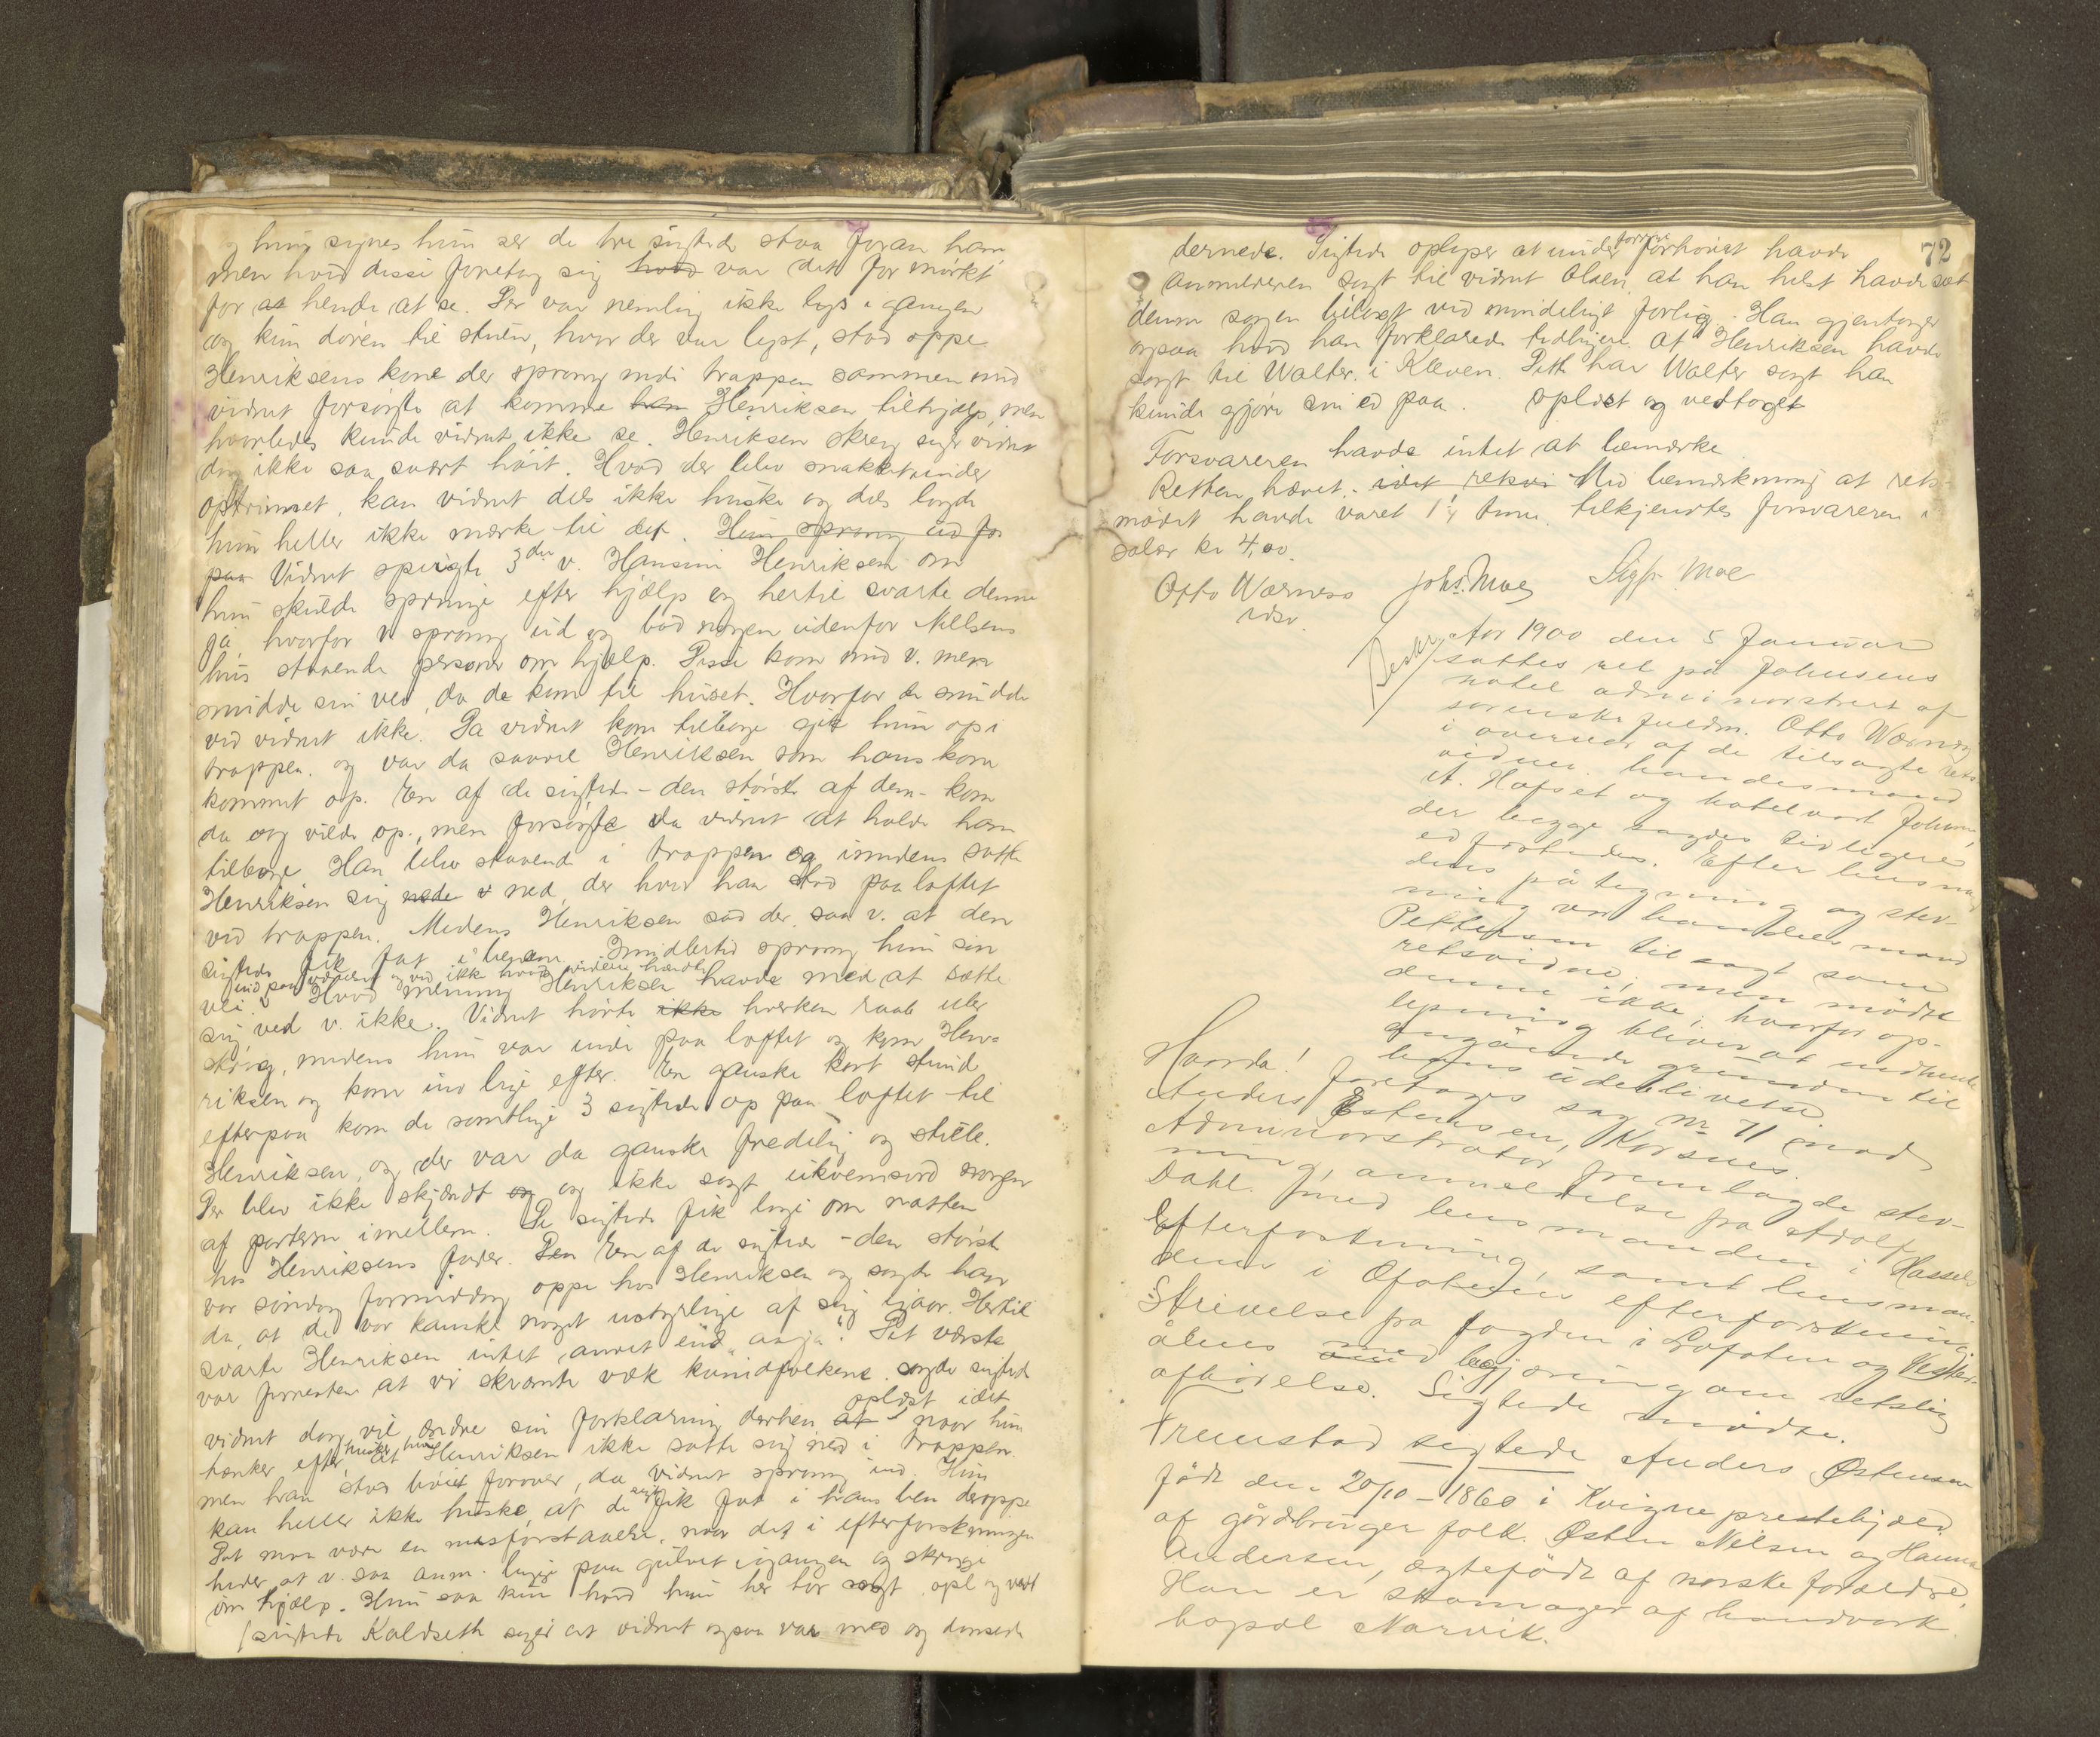 og hun synes hun ser de tre sigtede staa foran ham
men hvad disse foretog sig hvad var det for mørkt
for at hende at se. Der var nemlig ikke lys i gangen
og kun døren til stuen, hvor der var lyst, stod oppe
Henriksens kone der sprang nedi trappen sammen med
vidnet forsøgte at komme ham Henriksen tilhjælp, men
hvorledes kunde vidnet ikke se. Henriksen skreg siger vidnet
dog ikke saa svært høit. Hvad der blev snakket under
optrinnet, kan vidnet dels ikke huske og dels lagde
hun heller ikke mærke til det. Hun sprang ud for
paa Vidnet spurgte 3die v. Hansine Henriksen om
hun skulde springe efter hjælp og hertil svarte denne
ja, hvorfor v. sprang ud og bad nogen udenfor Nilsens
hus staaende personer om hjælp. Disse kom med v. men
snudde sin vei, da de kom til huset. Hvorfor de snudde
ved vidnet ikke. Da vidnet kom tilbage gik hun op i
trappen. og var da saavel Henriksen som hans kone
kommet op. En af de sigtede - den største af dem - kom
da og vilde op, men forsøgte da vidnet at holde ham
tilbage Han blev staaende i trappen og imedens satte
Henriksen sig nede v ned, der hvor han stod paa loftet
ved trappen. Medens Henriksen sad der, saa v. at den
sigtede fik fat i benene. Imidlertid sprang hun sin
vei ind paa værelset og ved ikke hvad videre hændte. Hvad mening Henriksen havde med at sætte
sig, ved v. ikke. Vidnet hørte ikke hverken raab eller
skrig, medens hun var inde paa loftet og kom Hen-
riksen og kone ind lige efter. En ganske kort stund
efterpaa kom de samtlige 3 sigtede op paa loftet til
Henriksen, og der var da ganske fredelig og stille.
Der blev ikke skjændt og og ikke sagt ukvemsord nogen
af parterne imellem. De sigtede fik ligge om natten
hos Henriksens fader. Den En af de sigtede - den største
var søndag formiddag oppe hos Henriksen og sagde han
da, at de var kanske noget ustyrlige af sig igaar. Hertil
svarte Henriksen intet andet end "aa ja". Det værste
var forresten at vi skræmte væk kvindfolkene. sagde sigtede
oplæst idet
vidnet dog vil ændre sin forklaring derhen at naar hun
tænker efter husker hun at Henriksen ikke satte sig ned i trappen.
men han stod bøiet forover, da vidnet sprang ind. Hun
kan heller ikke huske, at de sigt. fik fat i hans ben deroppe
Det maa være en misforstaaelse, naar det i efterforskningen
heder at v. saa anm. ligge paa gulvet i gangen og skrige
om hjælp. Hun saa kun hvad hun her har sagt opl og vedt
sigtede Koldseth siger at vidnet ogsaa var med og dansede
72
dernede. Sigtede oplyser at under forrige forhøret havde
anmelderen sagt til vidnet Olsen, at han helst havde sæt
denne sagen bilagt ved mindeligt forlig. Han gjentager
ogsaa hvad han forklarede tidligere. at Henriksen havde
sagt til Walter i Kleven. Dette har Walter sagt han
kunde gjøre sin ed paa. oplæst og vedtaget
Forsvareren havde intet at bemærke
Retten hævet. - idet retsvi Med bemærkning at rets-
mødet havde varet 1¼ time tilkjendtes forsvareren i
salær kr 4,00.
Otto Wærness Johs. Moe Sigfr Moe
Beskr. Aar 1900 den 5 Januar
sattes ret på Johnsens
hotel administrert af
sorenskr.fuldm. Otto Wærness
i overvær af de tilsagte rets
vidner handelsmand
A. Hofset og hotelvært Johnsen,
der begge sagdes tidligere
edfæstede. Efter lensman
dens påtegning og stev-
ning var handelsmand
Pettersen tilsagt som
retsvidne, men mødte
denne ikke, hvorfor op-
lysning bliver at indhente
angående grunden til
hans udeblivelse.
Hvorda! foretages sag nr 71 mod
Anders Østensen, Korsnes.
Administrator fremlagde stev-
ning, anmeldelse fra Adolf
Dahl. med lensmanden i Hassels
Efterforskning, samt lensman-
den i Ofotens efterforskning,
Skrivelse fra fogden i Lofoten og Vester-
ålens med begjæring om retslig
afhørelse. Sigtede mødte.
Fremstod sigtede Anders Østensen
født den 20/10 - 1860 i Kvigne prestegjæld
af gårdbruger folk. Østen Nilsen og Hanna
Andersen, ægtefødt af norske forældre.
Han er skomager af handverk
bopæl Narvik.